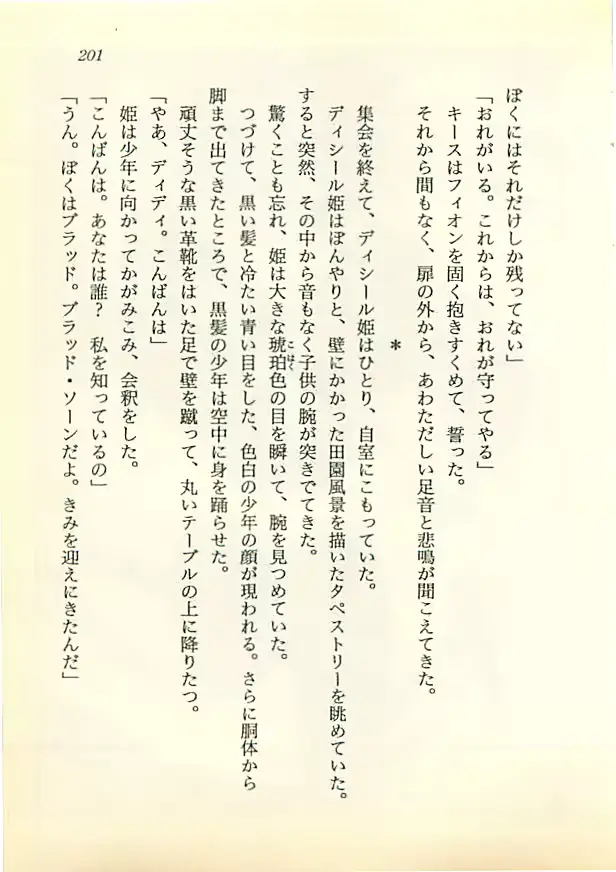 201
ぼくにはそれだけしか残ってない」
「おれがいる。これからは、おれが守ってやる」
キースはフィオンを固く抱きすくめて、誓った。
それから間もなく、扉の外から、あわただしい足音と悲鳴が聞こえてきた。
*
集会を終えて、ディシール姫はひとり、自室にこもっていた。
ディシール姫はぼんやりと、壁にかかった田園風景を描いたタペストリーを眺めていた。
すると突然、その中から音もなく子供の腕が突きでてきた。
驚くことも忘れ、姫は大きな琥珀色の目を瞬いて、腕を見つめていた。
こはく
つづけて、黒い髪と冷たい青い目をした、色白の少年の顔が現われる。さらに胴体から
脚まで出てきたところで、黒髪の少年は空中に身を踊らせた。
頑丈そうな黒い革靴をはいた足で壁を蹴って、丸いテーブルの上に降りたつ。
「やあ、ディディ。こんばんは」
姫は少年に向かってかがみこみ、会釈をした。
「こんばんは。あなたは誰? 私を知っているの」
「うん。ぼくはブラッド。ブラッド・ソーンだよ。きみを迎えにきたんだ」